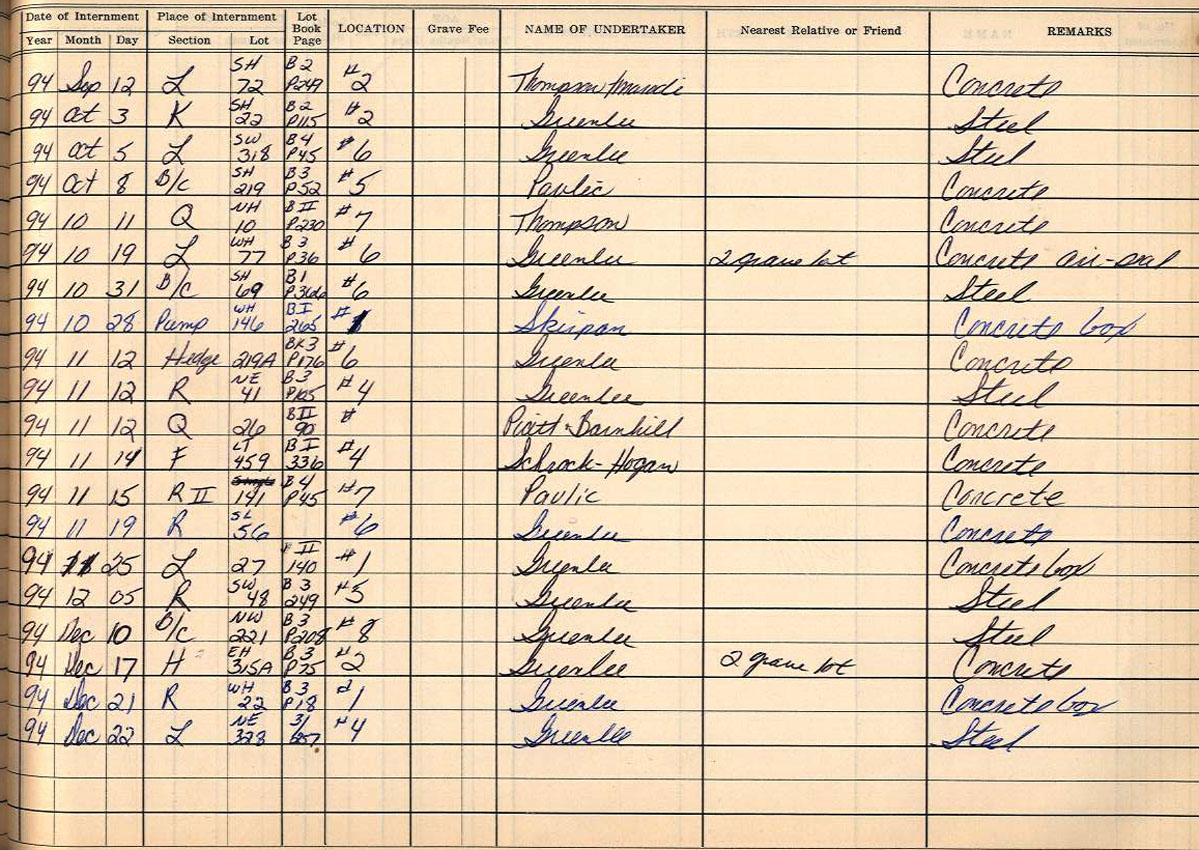 Date of Internment Place of Internment Lot Book Page LOCATION Grave Fee NAME OF UNDERTAKER Nearest Relative or Friend REMARKS
Year Month Day Section Lot
94 Sep 12 L SH 72 B2 P249 #2 Thompson Concrete
94 Oct 3 K SH 22 B2 P115 #2 Greenlee Steel
94 Oct 5 L SW 318 B4 P45 #6 Greenlee Steel
94 Oct 8 B/C SH 219 B3 P52 #5 Pavlic Concrete
94 10 11 Q NH 10 BII P230 #7 Thompson Concrete
94 10 19 L WH 77 B3 P36 #6 Greenlee 2 grave lot Concrete air-seal
94 10 31 B/C SH 69 B1 #6 Greenlee Steel
94 10 28 Pump WH 146 BI 265 #1 Skirpan Concrete box
94 11 12 Hedge 219A BK3 P176 #6 Greenlee Concrete
94 11 12 R NE 41 B3 #4 Greenlee Steel
94 11 12 Q 26 BII 90 # Piatt-Barnhill Concrete
94 11 14 F LT 459 BI 336 #4 Schrock-Hogan Concrete
94 11 15 R II 141 B4 P45 #7 Pavlic Concrete
94 11 19 R 56 #6 Greenlee Concrete
94 11 25 L 27 II 140 #1 Greenlee Concrete box
94 12 05 R SW 48 B3 249 #5 Greenlee Steel
94 Dec 10 B/C NW 221 B3 P208 #8 Greenlee Steel
94 Dec 17 H EH 315A B3 P75 #2 Greenlee 2 grave lot Concrete
94 Dec 21 R WH 22 B3 P18 #1 Greenlee Concrete box
94 Dec 22 L NE 328 #4 Greenlee Steel